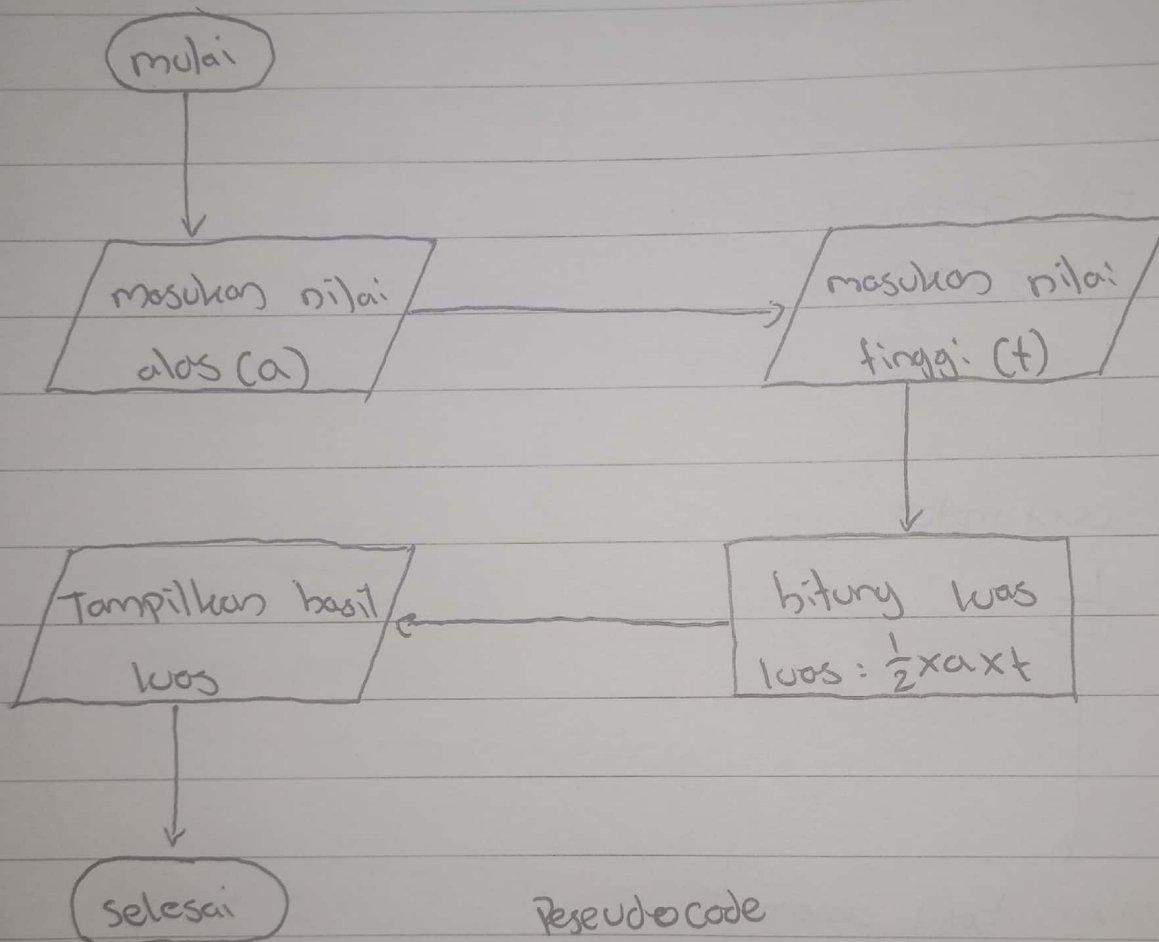 mulai
masukan nilai
alas (a)
masukan nilai
tinggi (t)
hitung luas
luas : 1/2 x a x t
Tampilkan hasil
luas
selesai
Peseudocode